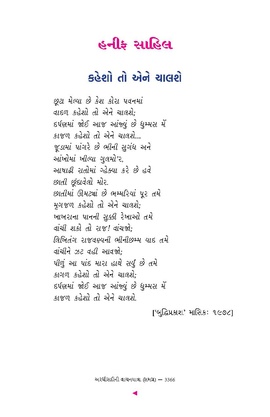 હનીફ સાહિલ
કહેશો તો એને ચાલશે
છૂટ્ટા મેલ્યા છે કેશ કોરા પવનમાં
વાદળ કહેશો તો એને ચાલશે;
દર્પણમાં જોઈ આજ આંજ્યું છે ધુમ્મસ મેં
કાજળ કહેશો તો એને ચાલશે...
જૂડામાં પાંગરે છે ભીની સુગંધ અને
આંખોમાં ખીલ્યા ગુલમ્હોર,
આષાઢી રાતોમાં ગ્હેક્યા કરે છે હવે
છાતી છૂંદાવેલો મોર.
છાતીમાં ઊમટ્યાં છે ભમ્મરિયાં પૂર તમે
મૃગજળ કહેશો તો એને ચાલશે;
ખાખરાના પાનની સુક્કી રેખાઓ તમે
વાંચી શકો તો રાજ! વાંચજો;
લિખિતંગ રાજવણની ભીનીછમ્મ યાદ તમે
વાંચીને ઝટ વહી આવજો;
પીળું આ પાંદ મારા હાથે સર્યું છે તમે
કાગળ કહેશો તો એને ચાલશે;
દર્પણમાં જોઈ આજ આંજ્યું છે ધુમ્મસ મેં
કાજળ કહેશો તો એને ચાલશે.
['બુદ્ધિપ્રકાશ' માસિક: ૧૯૭૮]
અરધીસદીની વાચનયાત્રા (૧થી૪) — 3566